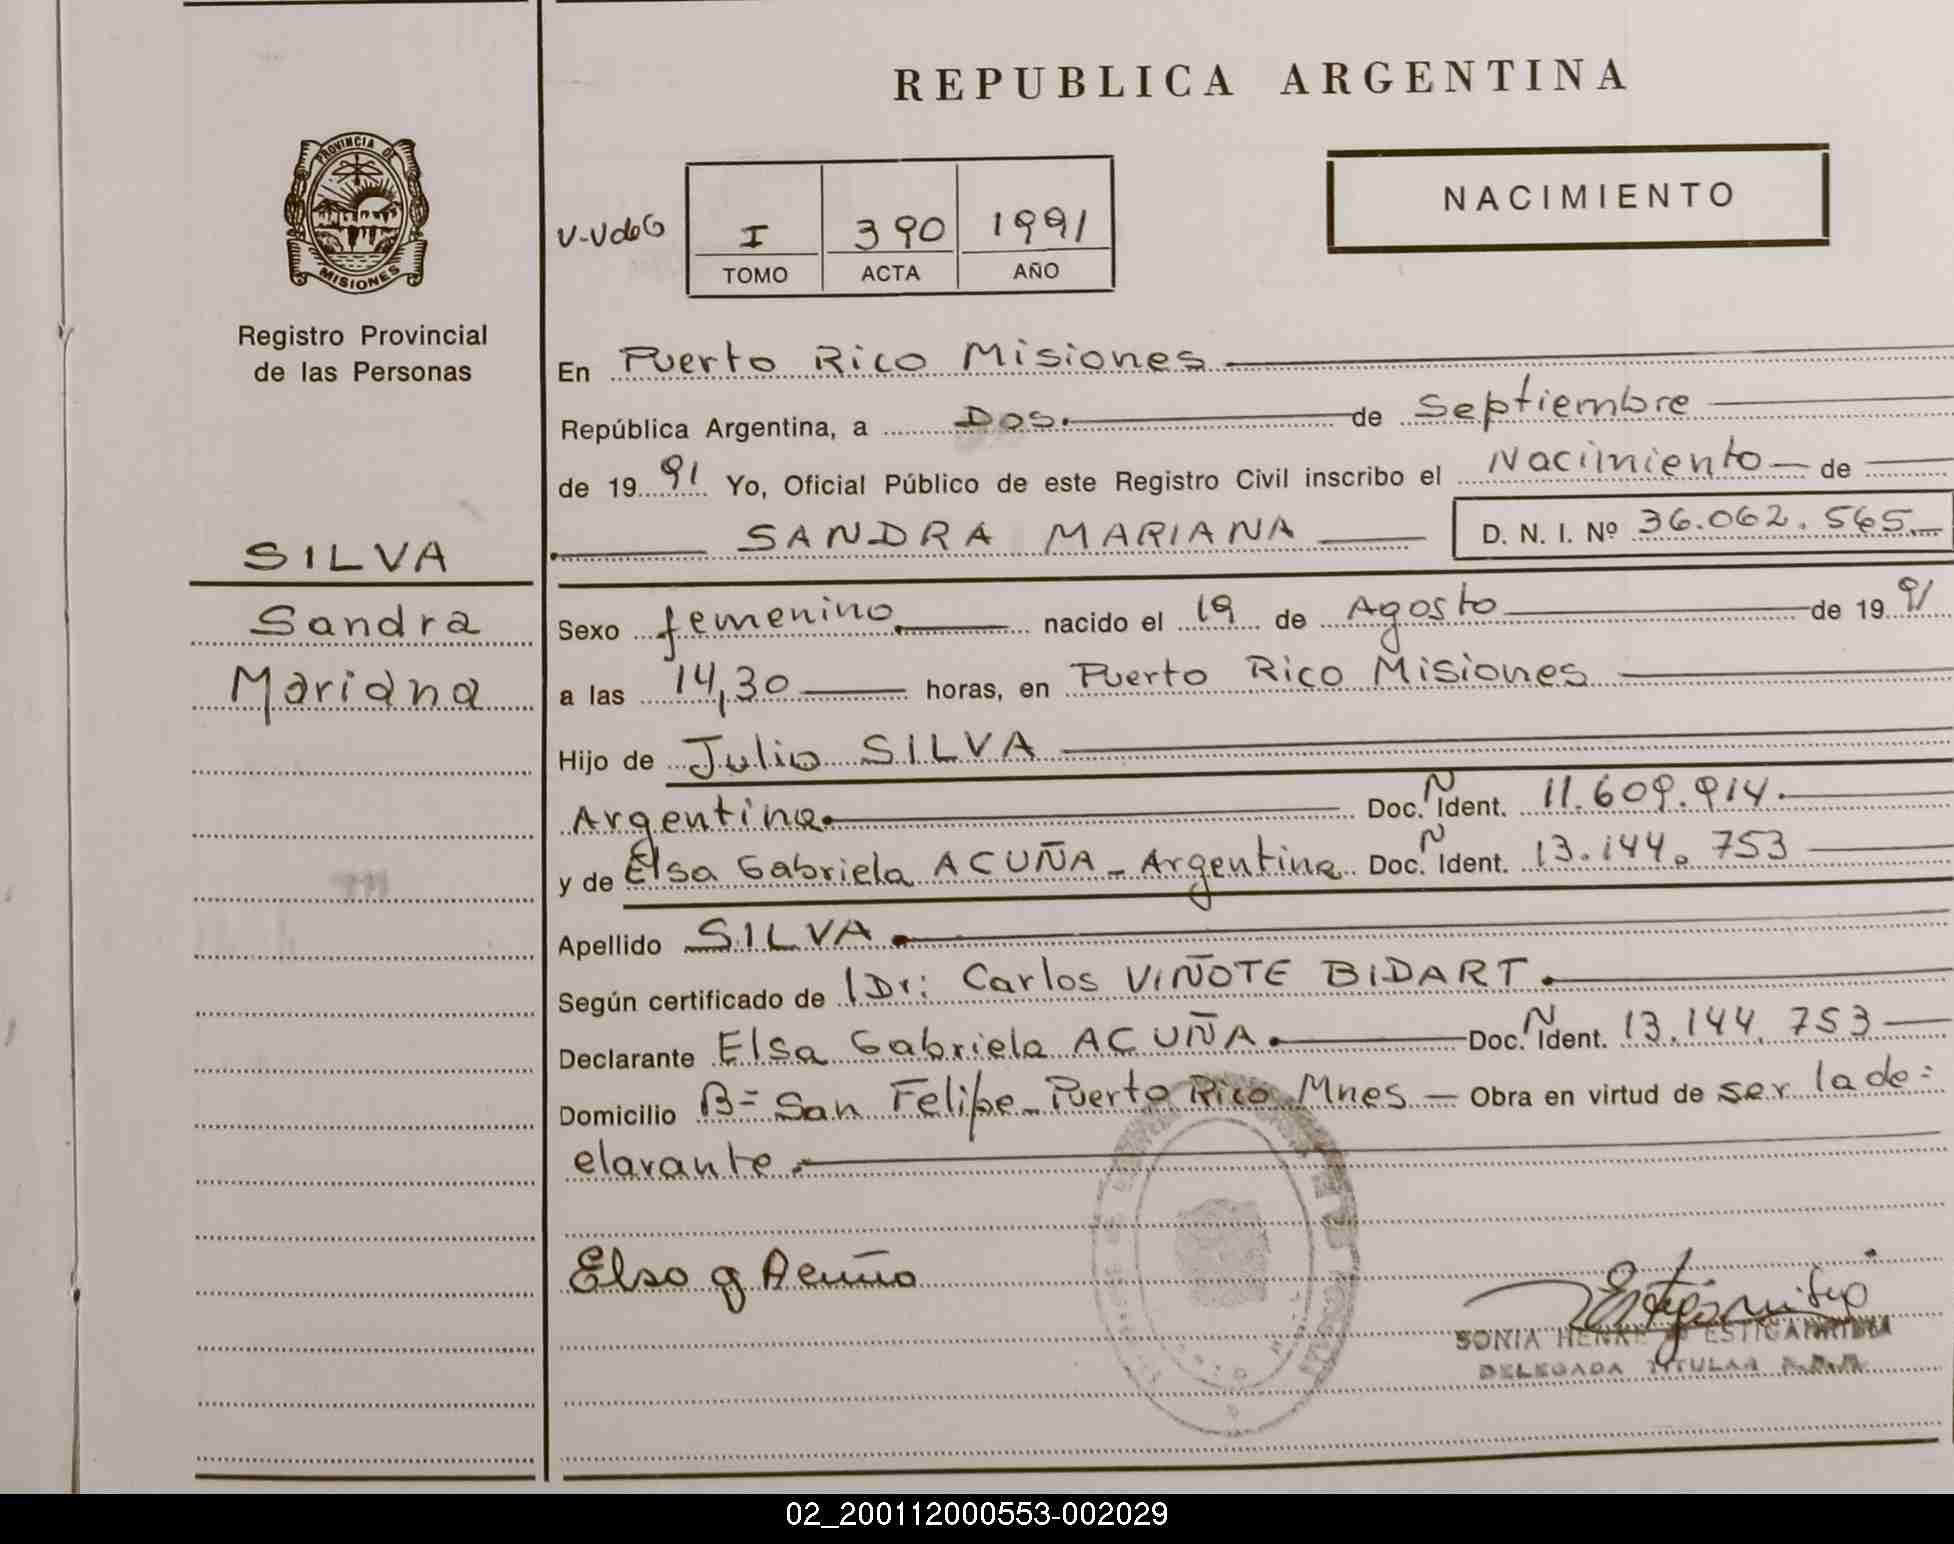 REPUBLICA ARGENTINA
PROVINCIA DE
MISIONES
Registro Provincial
de las Personas
SILVA
Sandra
Mariana
NACIMIENTO
V-VdeG
I 390 1991
TOMO ACTA AÑO
En Puerto Rico Misiones
República Argentina, a Dos. de Septiembre
de 19 91 Yo, Oficial Público de este Registro Civil inscribo el Nacimiento de
SANDRA MARIANA D. N. I. Nº 36.062.565
Sexo femenino nacido el 19 de Agosto de 19 91
a las 14,30 horas, en Puerto Rico Misiones
Hijo de Julio SILVA
Argentina Doc. N Ident. 11.609.914.
y de Elsa Gabriela ACUÑA - Argentina Doc. N Ident. 13.144.753
Apellido SILVA
Según certificado de Dr: Carlos VIÑOTE BIDART.
Declarante Elsa Gabriela ACUÑA. Doc. N Ident. 13.144.753
Domicilio B= San Felipe - Puerto Rico Mnes - Obra en virtud de ser la de=
clarante.
Elsa G Acuña
SONIA HENKE
DELEGADA TITULAR
02_200112000553-002029